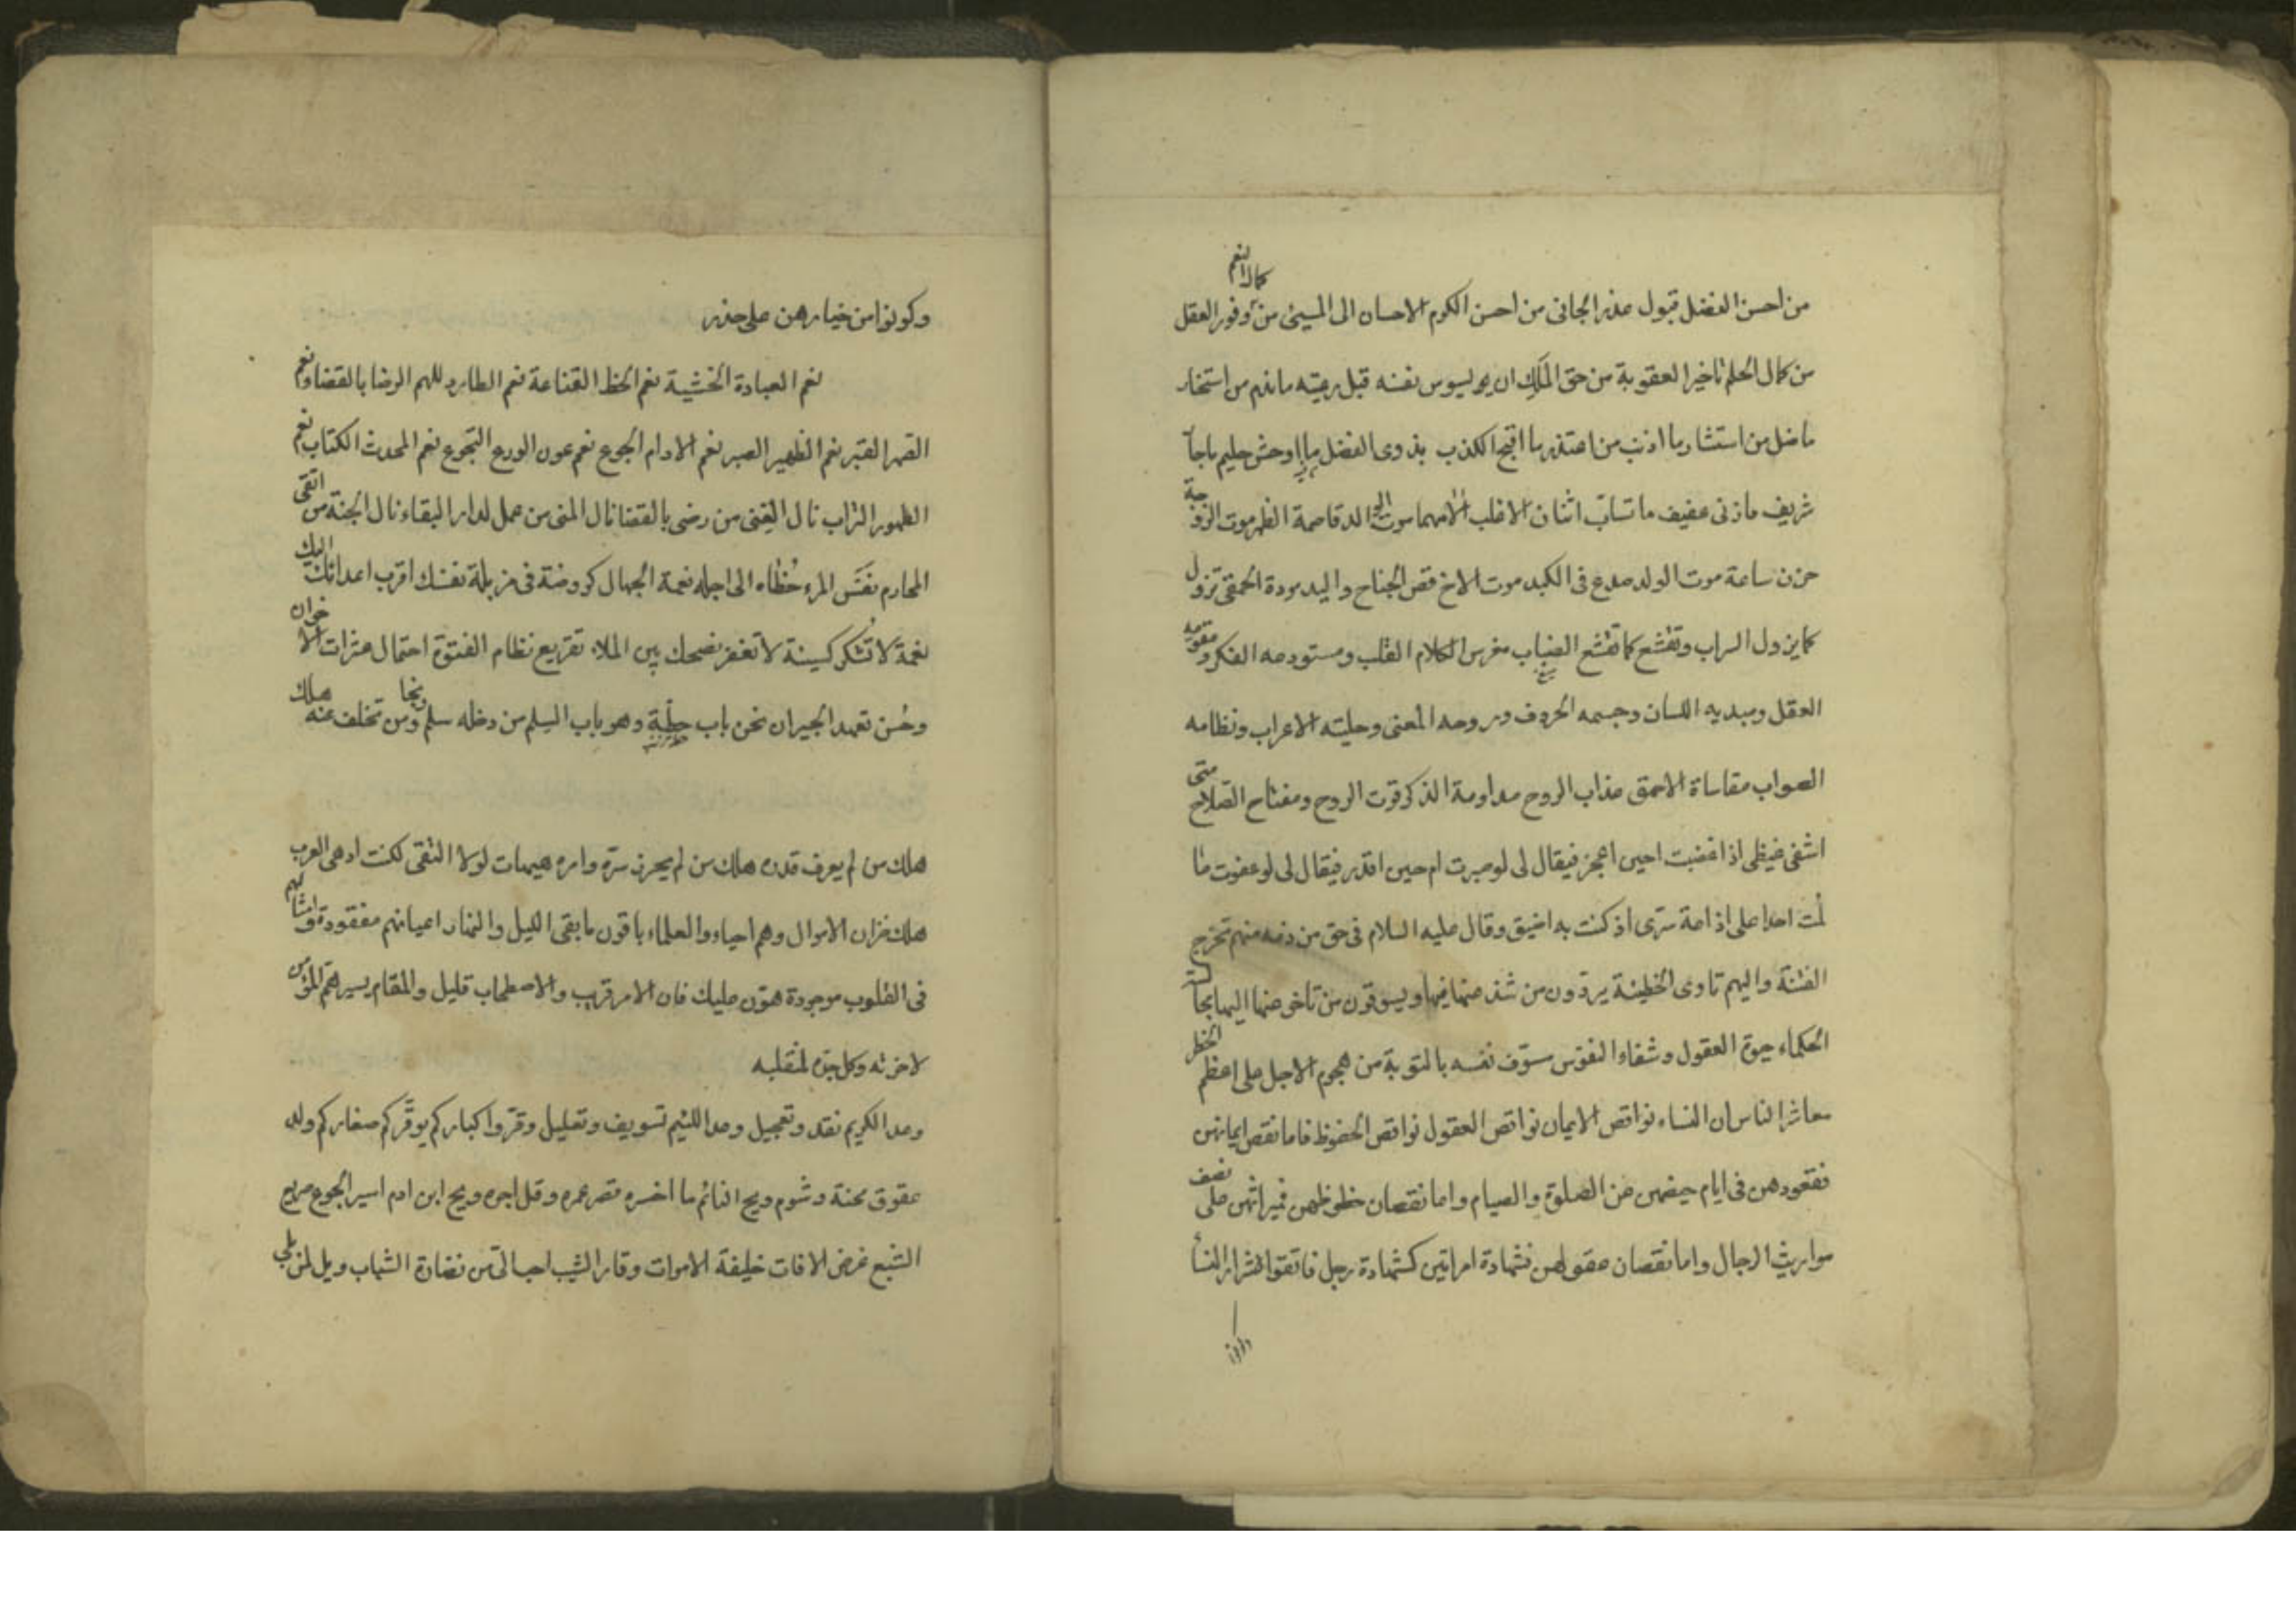 من احسن الفضل قبول عذر الجانى من احسن الكرم الاحسان الى المسيئ من كمال النعم وفور العقل
من كمال الحلم تاخير العقوبة من حق الملك ان يسوس نفسه قبل رعيته ماندم من استخار
ماضل من استشار ما اذنب من اعتذر ما اقبح الكذب بذوى الفضل ما اوحش حليم ماجا
شريف مازنى عفيف ماتساب اثنان الا غلب الأمهما موت الوالد قاصمة الظهر موت الزوجة
حزن ساعة موت الولد صدع فى الكبد موت الاخ قص الجناح واليد مودة الحمقى تزول
كما يزول السراب وتقشع كما تقشع الضباب مغرس الكلام القلب ومستودعه الفكر ومقويه
العقل ومبديه اللسان وجسمه الحروف وروحه المعنى وحليته الاعراب ونظامه
الصواب مقاساة الاحمق عذاب الروح مداومة الذكر قوت الروح ومفتاح الصلاح متى
اشفى غيظى اذا غضبت احين اعجز فيقال لى لو صبرت ام حين اقدر فيقال لى لو عفوت ما
لمت احدا على اذاعة سرى اذ كنت به اضيق وقال عليه السلام فى حق من ذمه منهم تخرج
الفتنة واليهم تاوى الخطيئة يردون من شذ عنها فيها ويسوقون من تاخر عنها اليها مجالسة
الحكماء حيوة العقول وشفاء النفوس مسوّف نفسه بالتوبة من هجوم الاجل على اعظم الخطر
معاشر الناس ان النساء نواقص الايمان نواقص العقول نواقص الحظوظ فاما نقص ايمانهن
فقعودهن فى ايام حيضهن عن الصلوة والصيام واما نقصان حظوظهن فميراثهن على نصف
مواريث الرجال واما نقصان عقولهن فشهادة امراتين كشهادة رجل فاتقوا شرار النسأ
وكونوا من خيارهن على حذر
نعم العبادة الخشية نعم الحظ القناعة نعم الطارد للهم الرضا بالقضاء نعم
الصهر القبر نعم الظهير الصبر نعم الادام الجوع نعم عون الورع التجوع نعم المحدث الكتاب نعم
الطهور التراب نال الغنى من رضى بالقضا نال المنى من عمل لدار البقاء نال الجنة من اتقى
المحارم نفَس المرء خُطاه الى اجله نعمة الجهال كروضة فى مزبلة نفسك اقرب اعدائك اليك
نعمة لا تشكر كسيئة لا تغفر نصحك بين الملاء تقريع نظام الفتوة احتمال عثرات الاخوان
وحُسن تعهد الجيران نحن باب حِطّة وهو باب السلم من دخله سلم ونجا ومن تخلف عنه هلك
هلك من لم يعرف قدره هلك من لم يحرز سرّه وامره هيهات لولا التقى لكنت ادهى العرب
هلك خزان الاموال وهم احياء والعلماء باقون ما بقى الليل والنهار اعيانهم مفقودة وامثالهم
فى القلوب موجودة هوّن عليك فان الامر قريب والاصطحاب قليل والمقام يسير همّ المؤمن
لاخرته وكل جدّه لمنقلبه
وعد الكريم نقد وتعجيل وعد اللئيم تسويف وتعليل وقرّوا كباركم يوقّركم صغاركم ولد
عقوق محنة وشوم ويح النائم ما اخسره قصر عمره وقل اجره ويح ابن ادم اسير الجوع صريع
الشبع غرض الافات خليفة الاموات وقار الشيب احب الىّ من نضارة الشباب ويل لمن بلى